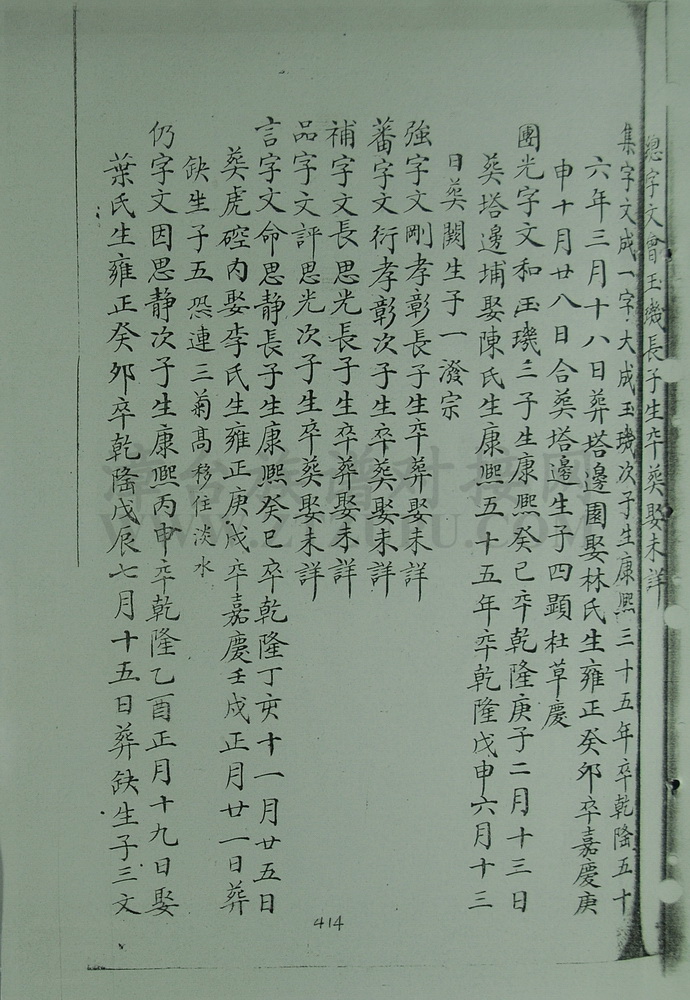 總字文會玉璣長子生卒葬娶未詳
集字文成一字大成玉璣次子生康熙三十五年卒乾隆五十
六年三月十八日葬塔邊園娶林氏生雍正癸卯卒嘉慶庚
申十月廿八日合葬塔邊生子四顕杜草慶
團光字文和玉璣三子生康熙癸巳卒乾隆庚子二月十三日
葬塔邊埔娶陳氏生康熙五十五年卒乾隆戊申六月十三
日葬闕生子一潑宗
強字文剛孝彰長子生卒葬娶未詳
蕃字文衍孝彰次子生卒葬娶未詳
補字文長思光長子生卒葬娶未詳
品字文評思光次子生卒葬娶未詳
言字文命思静長子生康熙癸巳卒乾隆丁亥十一月廿五日
葬虎硿内娶李氏生雍正庚戍卒嘉慶壬戍正月廿一日葬
缺生子五 連三菊髙移住淡水
仍字文因思静次子生康熙丙申卒乾隆乙酉正月十九日娶
葉氏生雍正癸卯卒乾隆戊辰七月十五日葬缺生子三文
414